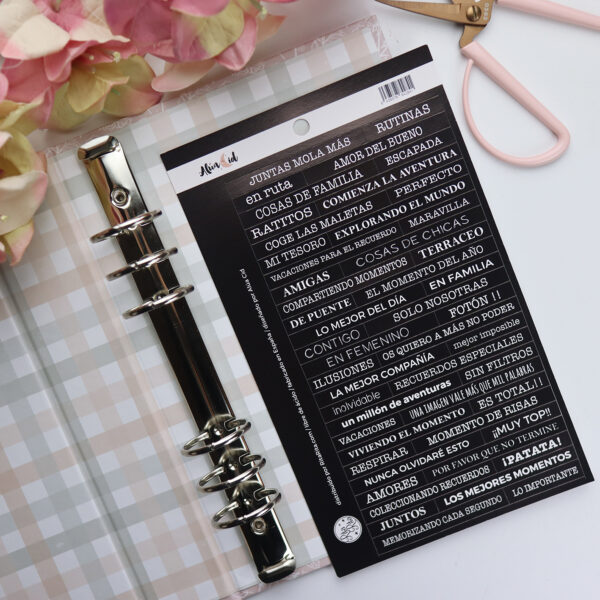 Alúa Cid
JUNTAS MOLA MÁS RUTINAS
en ruta AMOR DEL BUENO
COSAS DE FAMILIA ESCAPADA
RATITOS COMIENZA LA AVENTURA
COGE LAS MALETAS PERFECTO
MI TESORO EXPLORANDO EL MUNDO
VACACIONES PARA EL RECUERDO MARAVILLA
AMIGAS COSAS DE CHICAS
COMPARTIENDO MOMENTOS TERRACEO
DE PUENTE EL MOMENTO DEL AÑO
LO MEJOR DEL DÍA EN FAMILIA
CONTIGO SOLO NOSOTRAS
EN FEMENINO FOTÓN!!
ILUSIONES OS QUIERO A MÁS NO PODER
LA MEJOR COMPAÑÍA mejor imposible
inolvidable RECUERDOS ESPECIALES
un millón de aventuras SIN FILTROS
VACACIONES UNA IMAGEN VALE MÁS QUE MIL PALABRAS
VIVIENDO EL MOMENTO ES TOTAL!!
RESPIRAR MOMENTO DE RISAS
NUNCA OLVIDARÉ ESTO ¡¡MUY TOP!!
AMORES POR FAVOR QUE NO TERMINE
COLECCIONANDO RECUERDOS ¡PATATA!
JUNTOS LOS MEJORES MOMENTOS
MEMORIZANDO CADA SEGUNDO LO IMPORTANTE